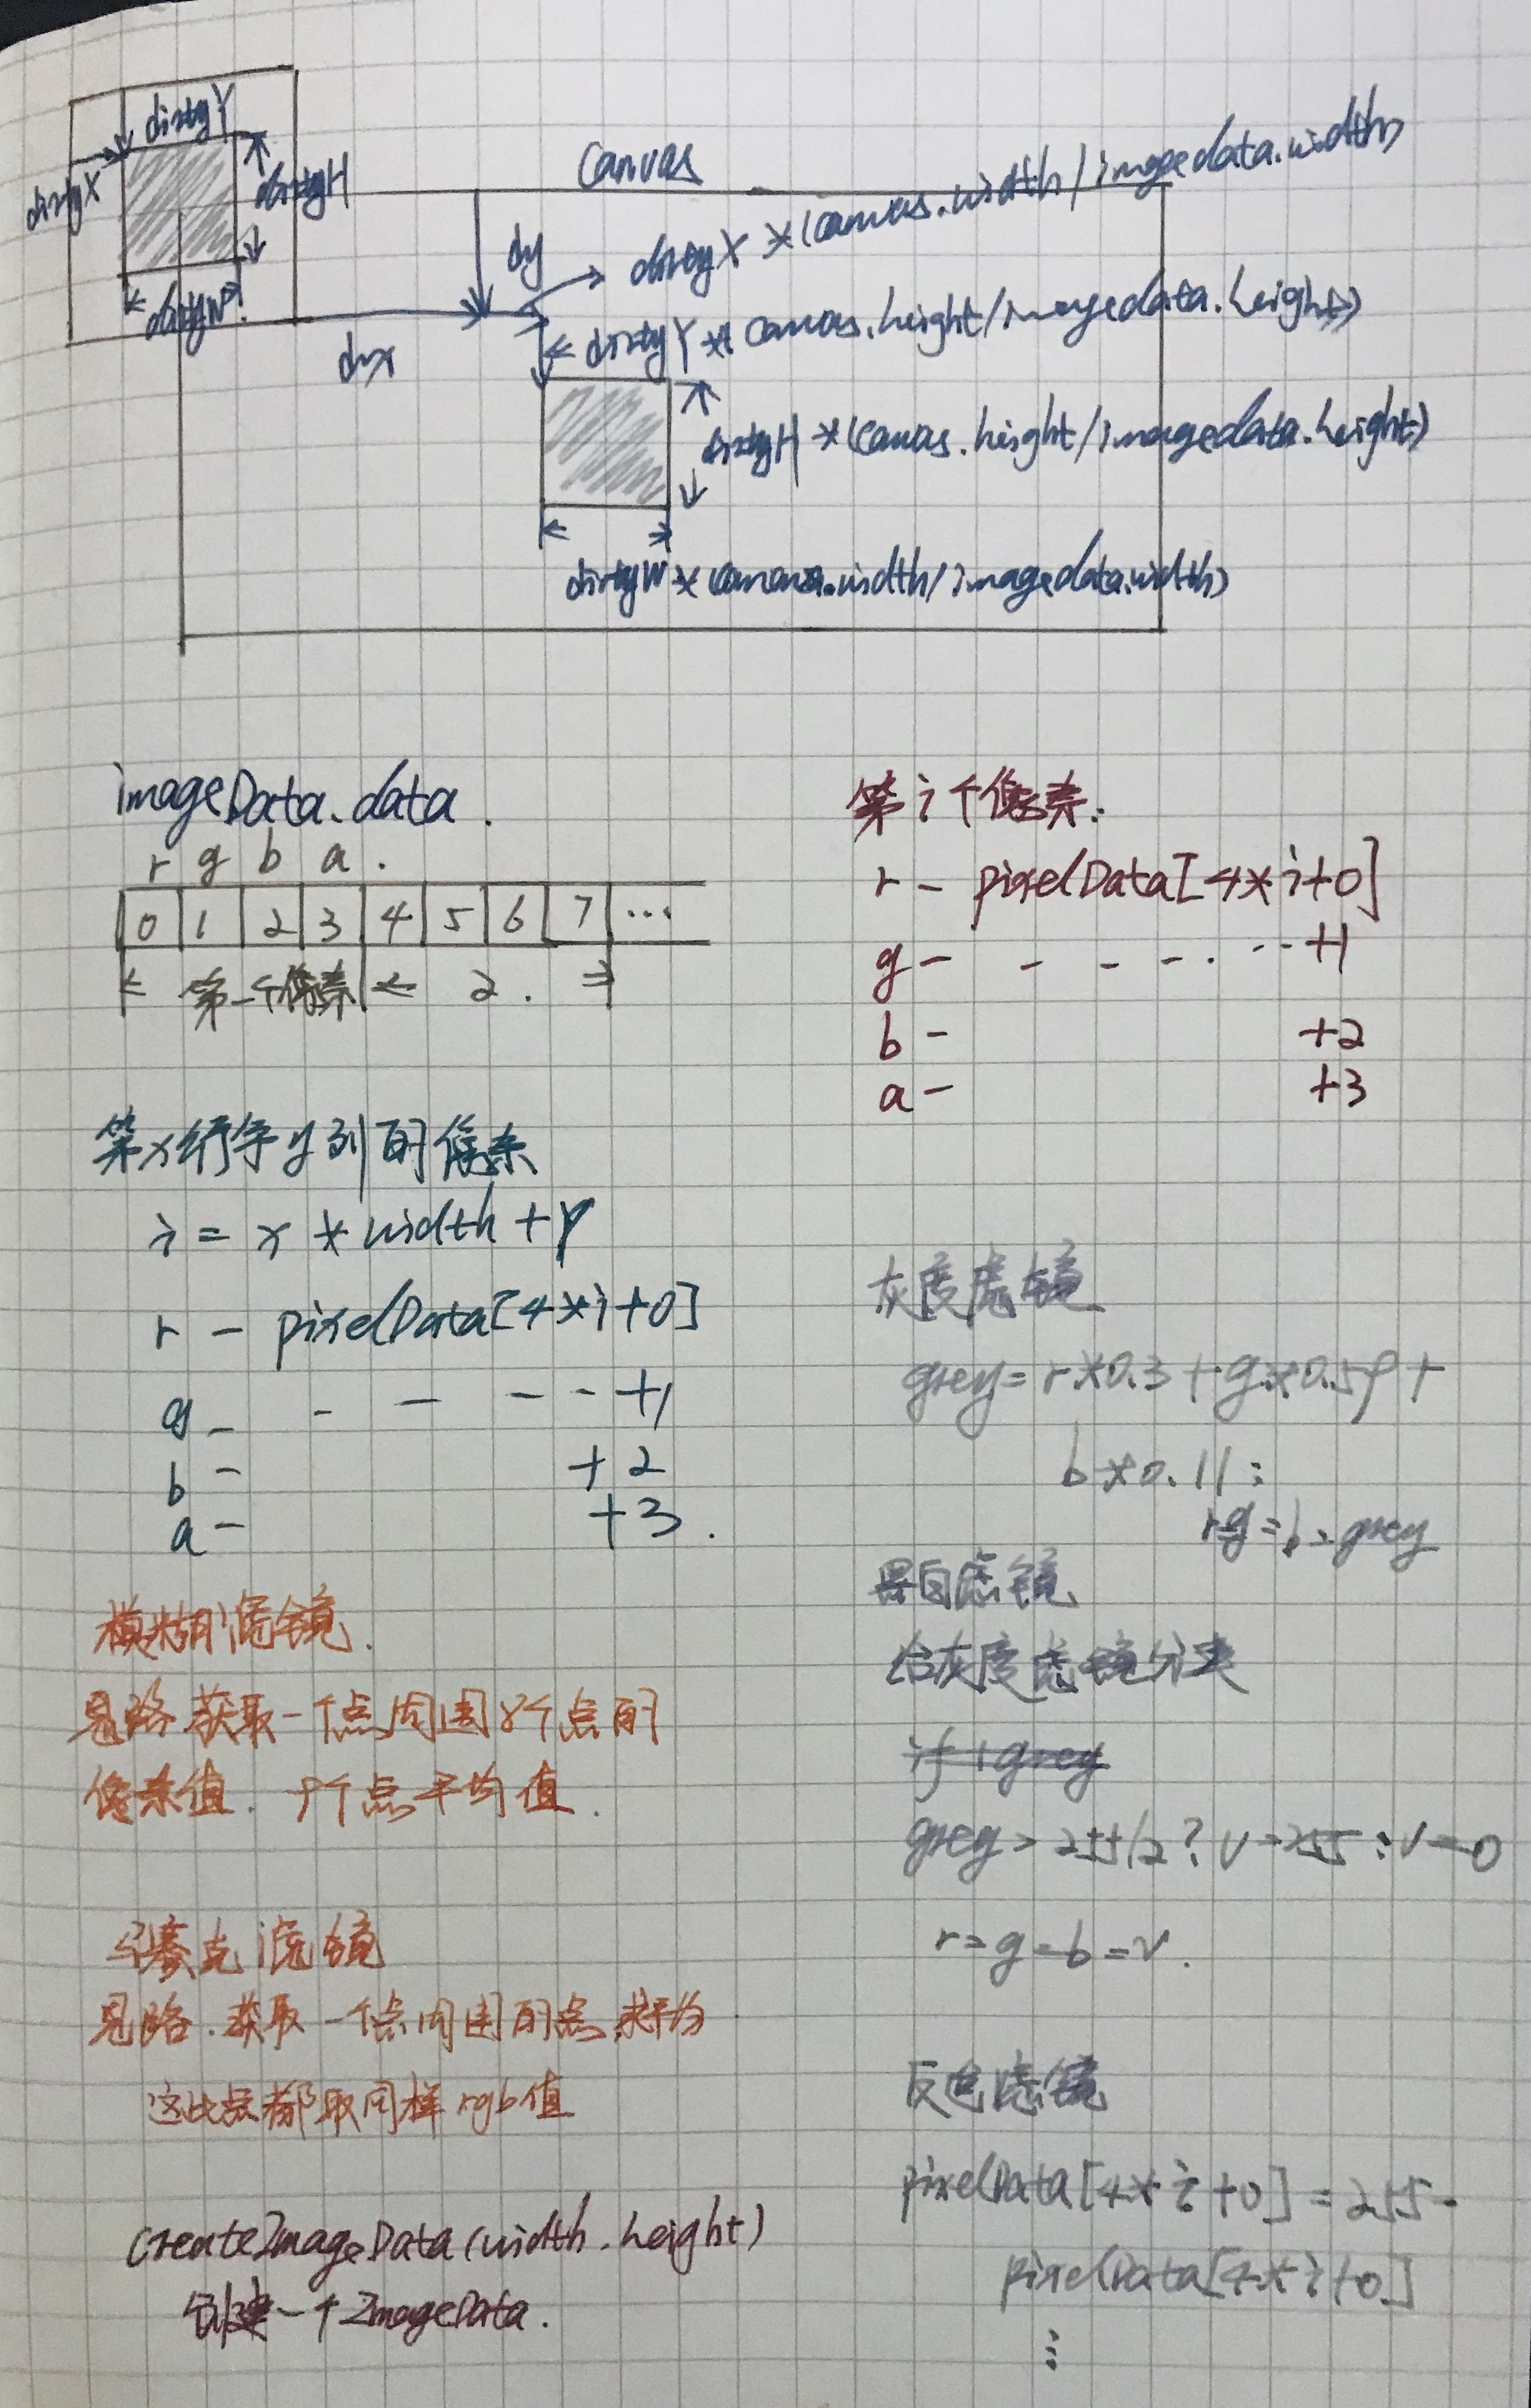 dirtyY
dirtyX
dirtyH
dirtyW
canvas
dx
dy
dirtyX *(canvas.width/imagedata.width)
dirtyY *( canvas.height/imagedata.height)
dirtyH *(canvas.height/imagedata.height)
dirtyW *(canvas.width/imagedata.width)
imageData.data.
r g b a .
0 1 2 3 4 5 6 7 ...
第一个像素 2.
第x行第y列的像素
i = x * width + y
r - pixelData[4*i+0]
g - - - - - +1
b - +2
a - +3.
模糊滤镜.
思路.获取一个点周围8个点的
像素值. 9个点平均值.
马赛克滤镜
思路.获取一个点周围的点,求平均
这些点都取同样rgb值
createImageData(width.height)
创建一个ImageData.
第i个像素:
r - pixelData[4*i+0]
g - - - - . - - +1
b - +2
a - +3
灰度滤镜
grey=r*0.3+g*0.59+
b*0.11;
r=g=b=grey
黑白滤镜
给灰度滤镜分类
if(grey
grey > 255/2? v=255:v=0
r=g=b=v.
反色滤镜
pixelData[4*i+0] = 255-
pixelData[4*i+0]
⋮